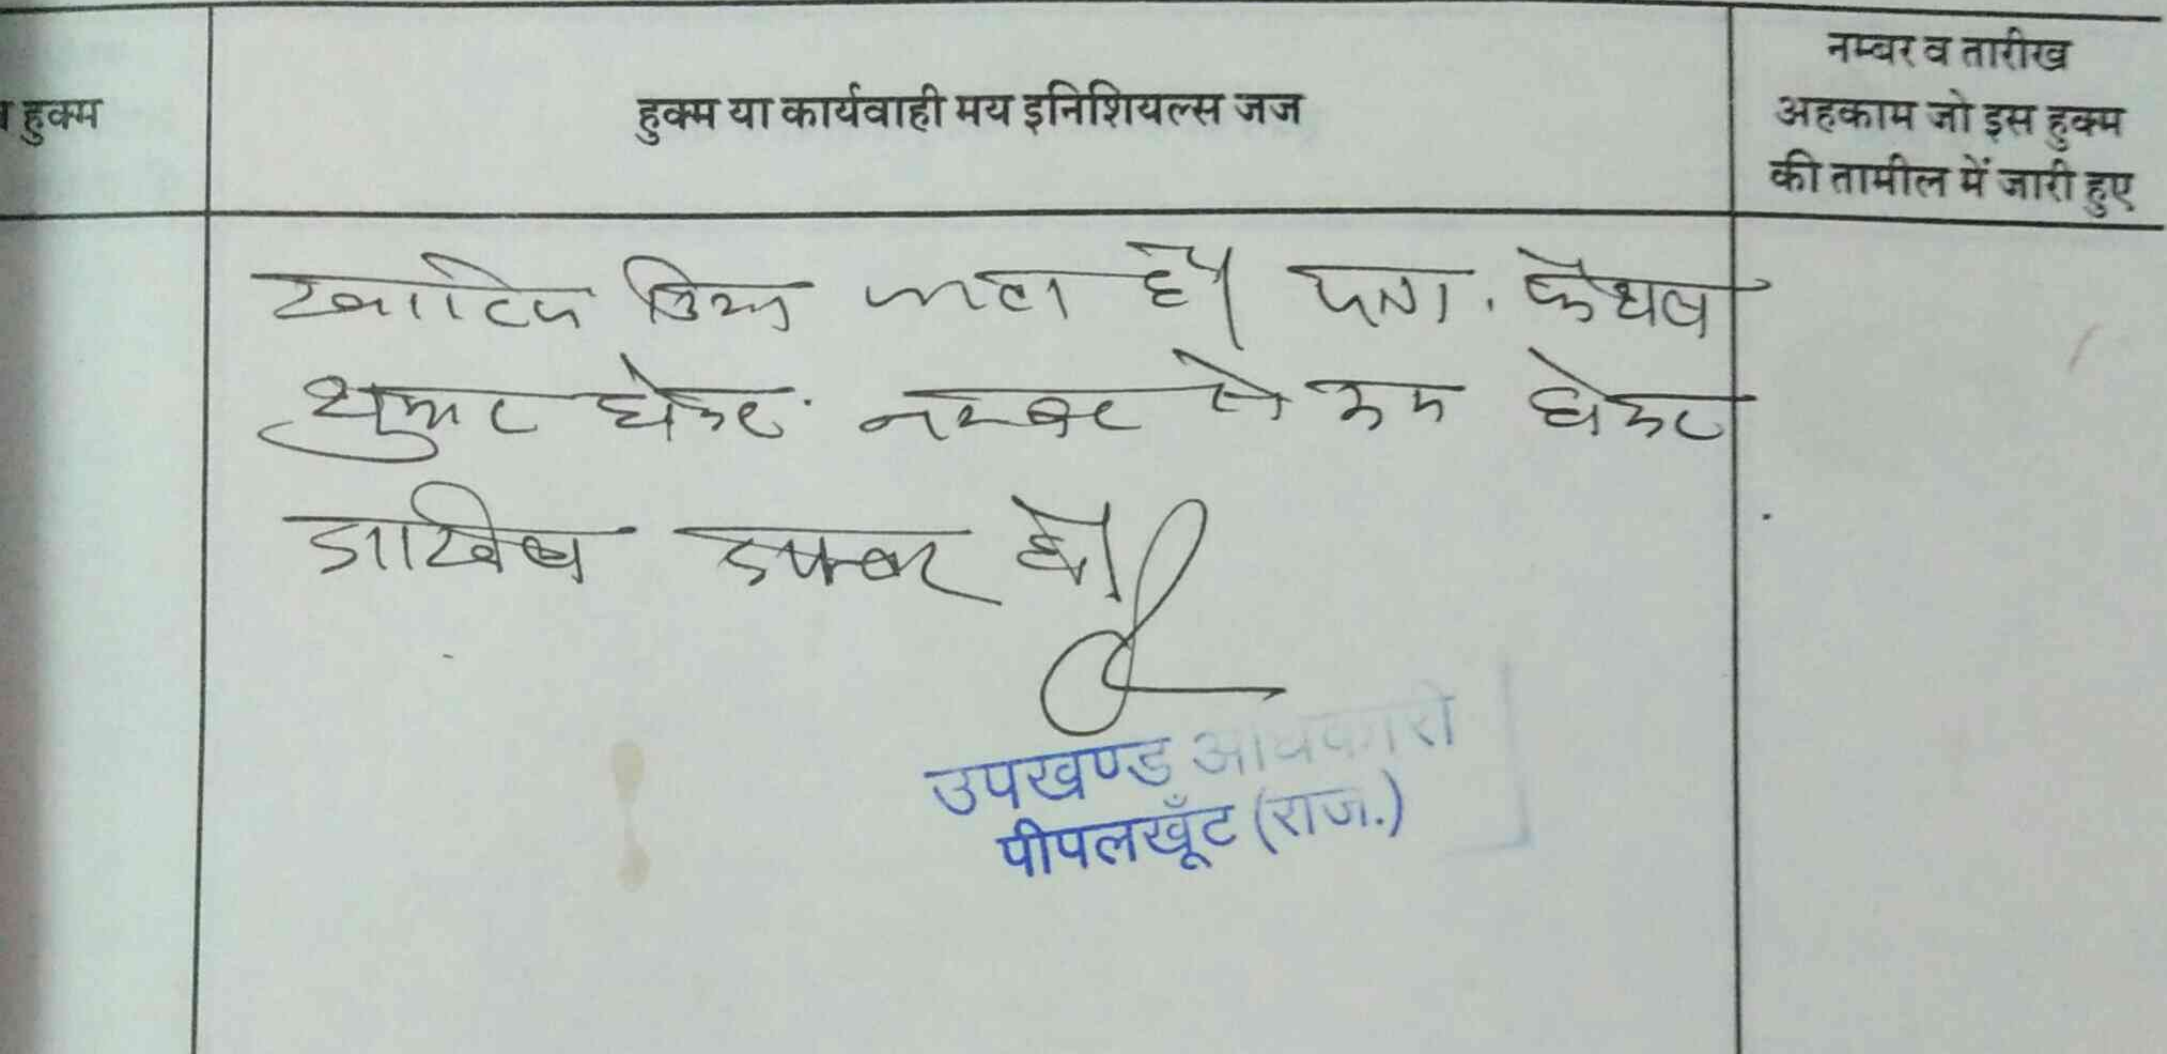 हुक्म
हुक्म या कार्यवाही मय इनिशियल्स जज
नम्बर व तारीख
अहकाम जो इस हुक्म
की तामील में जारी हुए
खारिज किया जाता है। पत्रा. फैसल
शुमार होकर नम्बर से कम होकर
दाखिल दफ्तर हो।
उपखण्ड अधिकारी
पीपलखूँट (राज.)